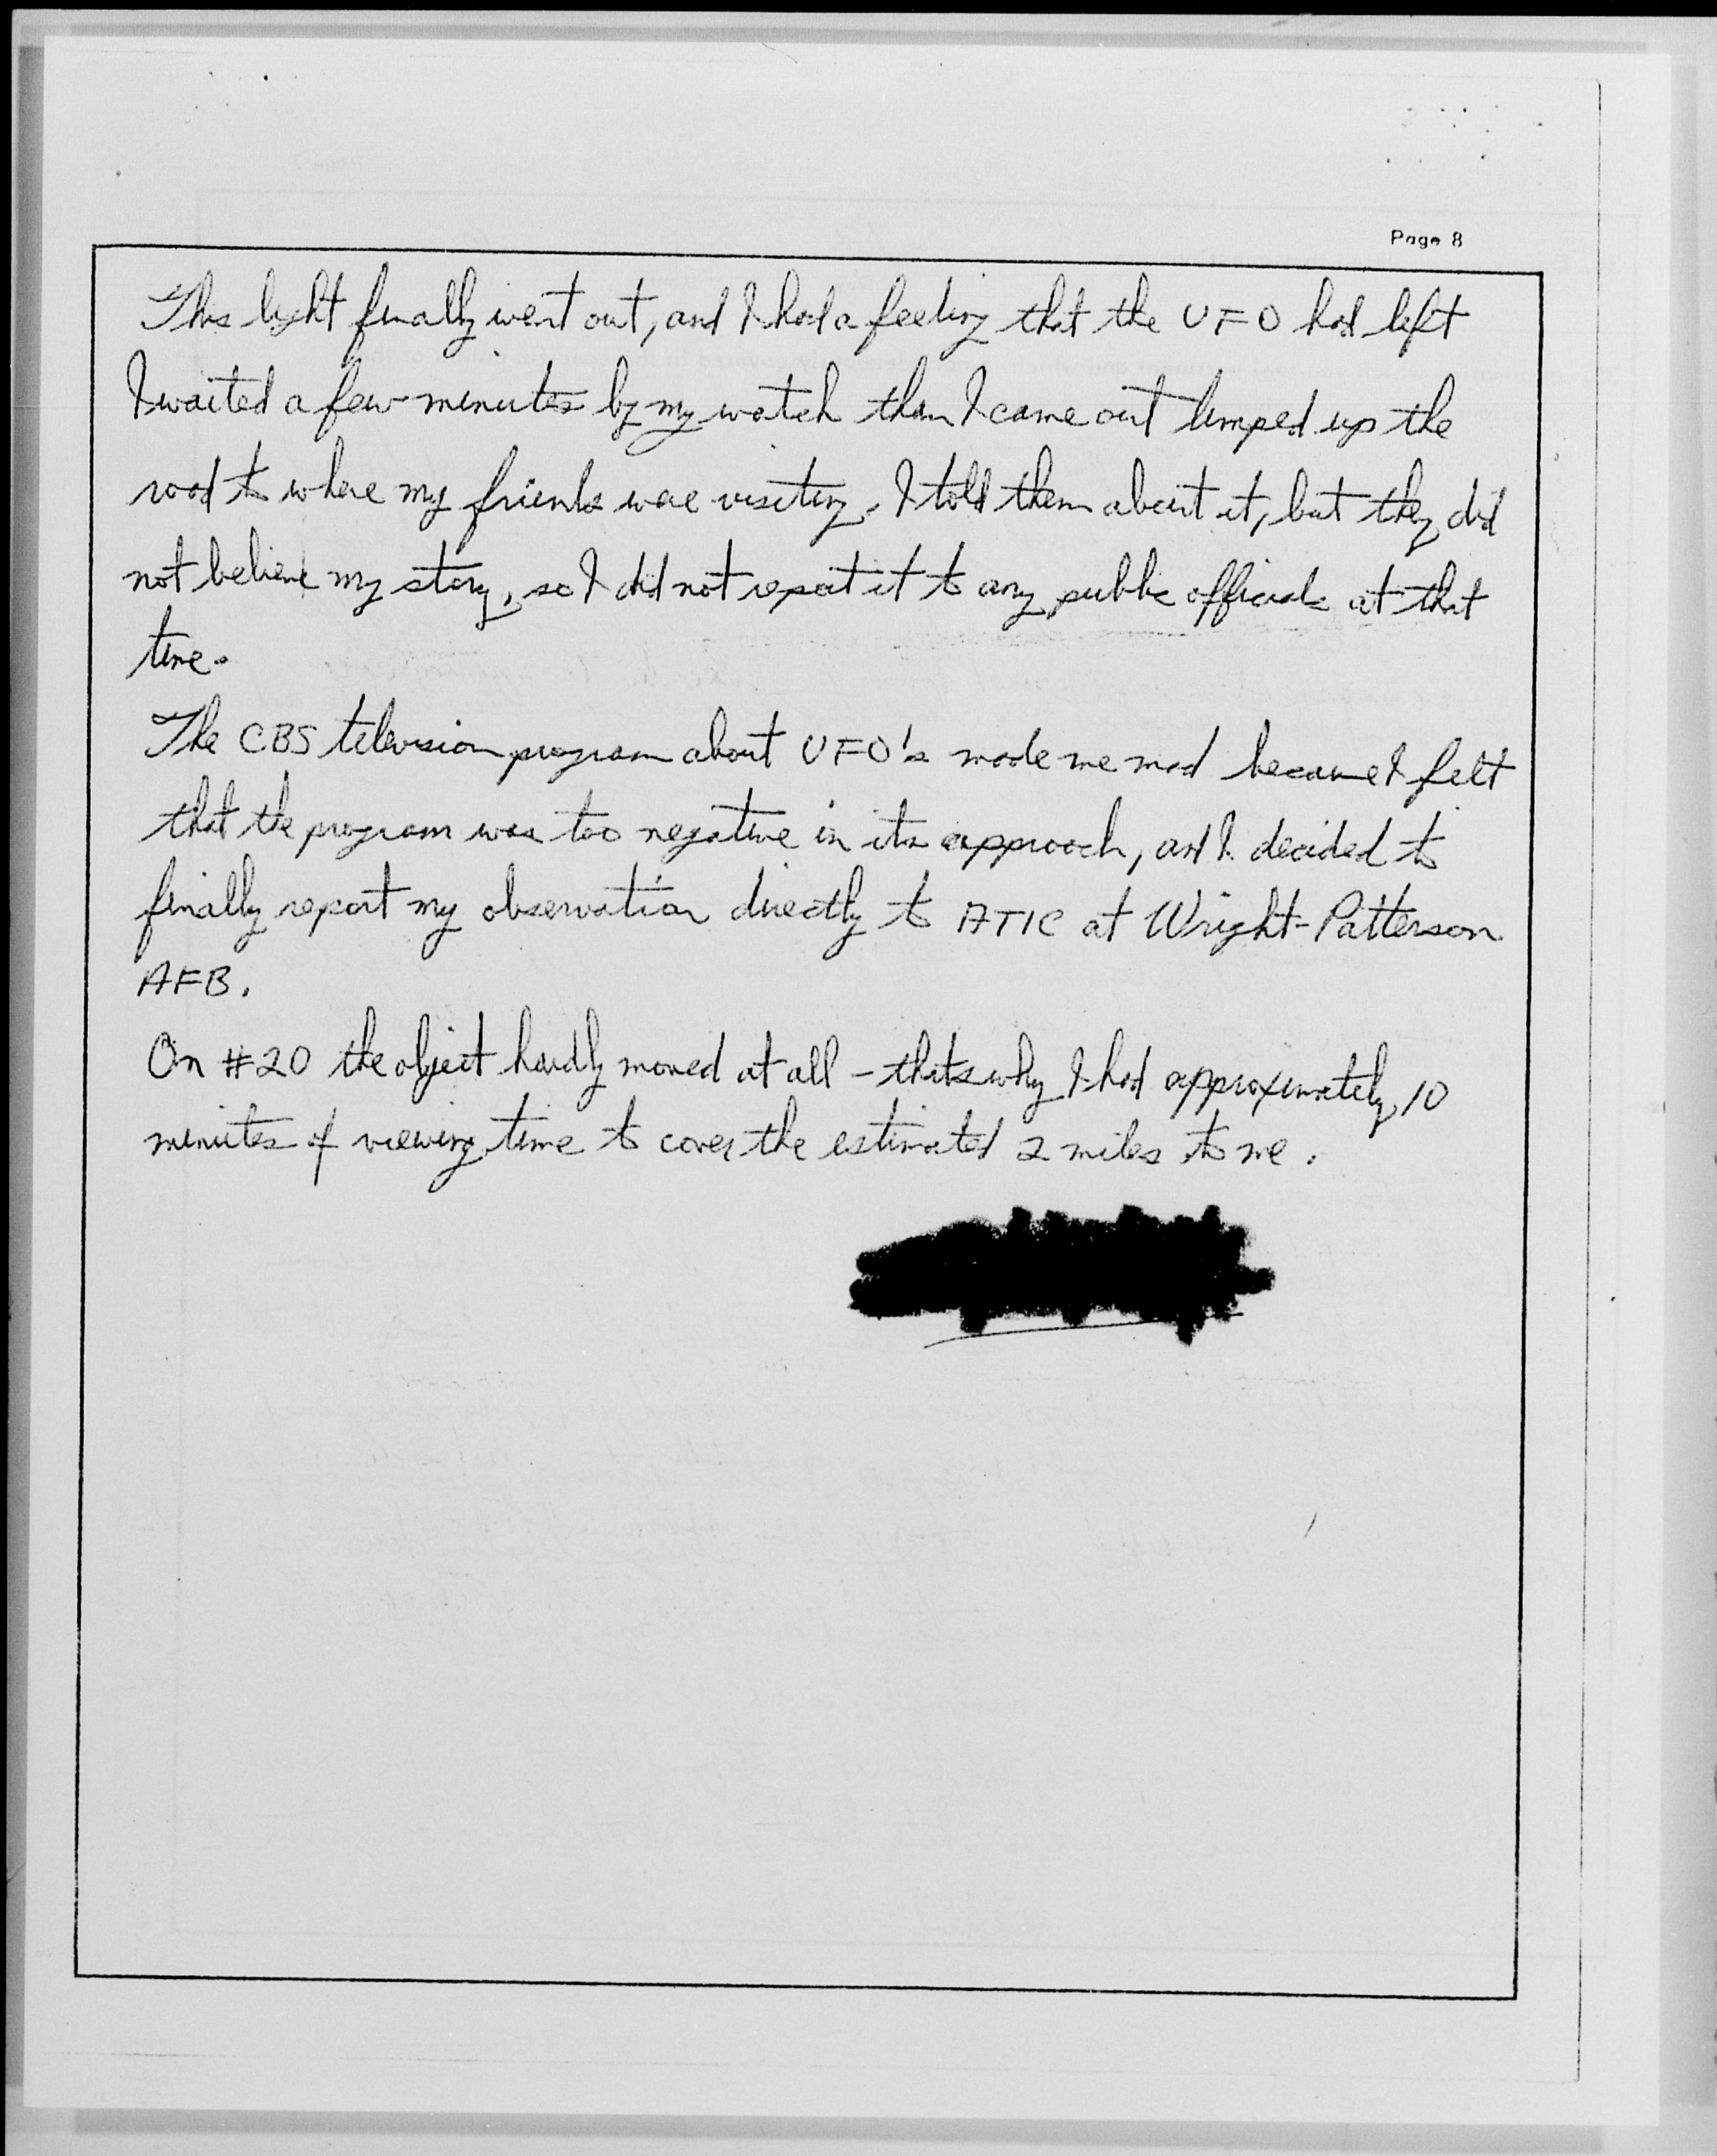 Page 8
This light finally went out, and I had a feeling that the UFO had left
I waited a few minutes by my watch then I came out limped up the
road to where my friends were visiting. I told them about it, but they did
not believe my story, so I did not report it to any public officials at that
time.
The CBS television program about UFO's made me mad because I felt
that the program was too negative in its approach, and I decided to
finally report my observation directly to ATIC at Wright-Patterson
AFB.
On #20 the object hardly moved at all - thats why I had approximately 10
minutes of viewing time to cover the estimated 2 miles to me.